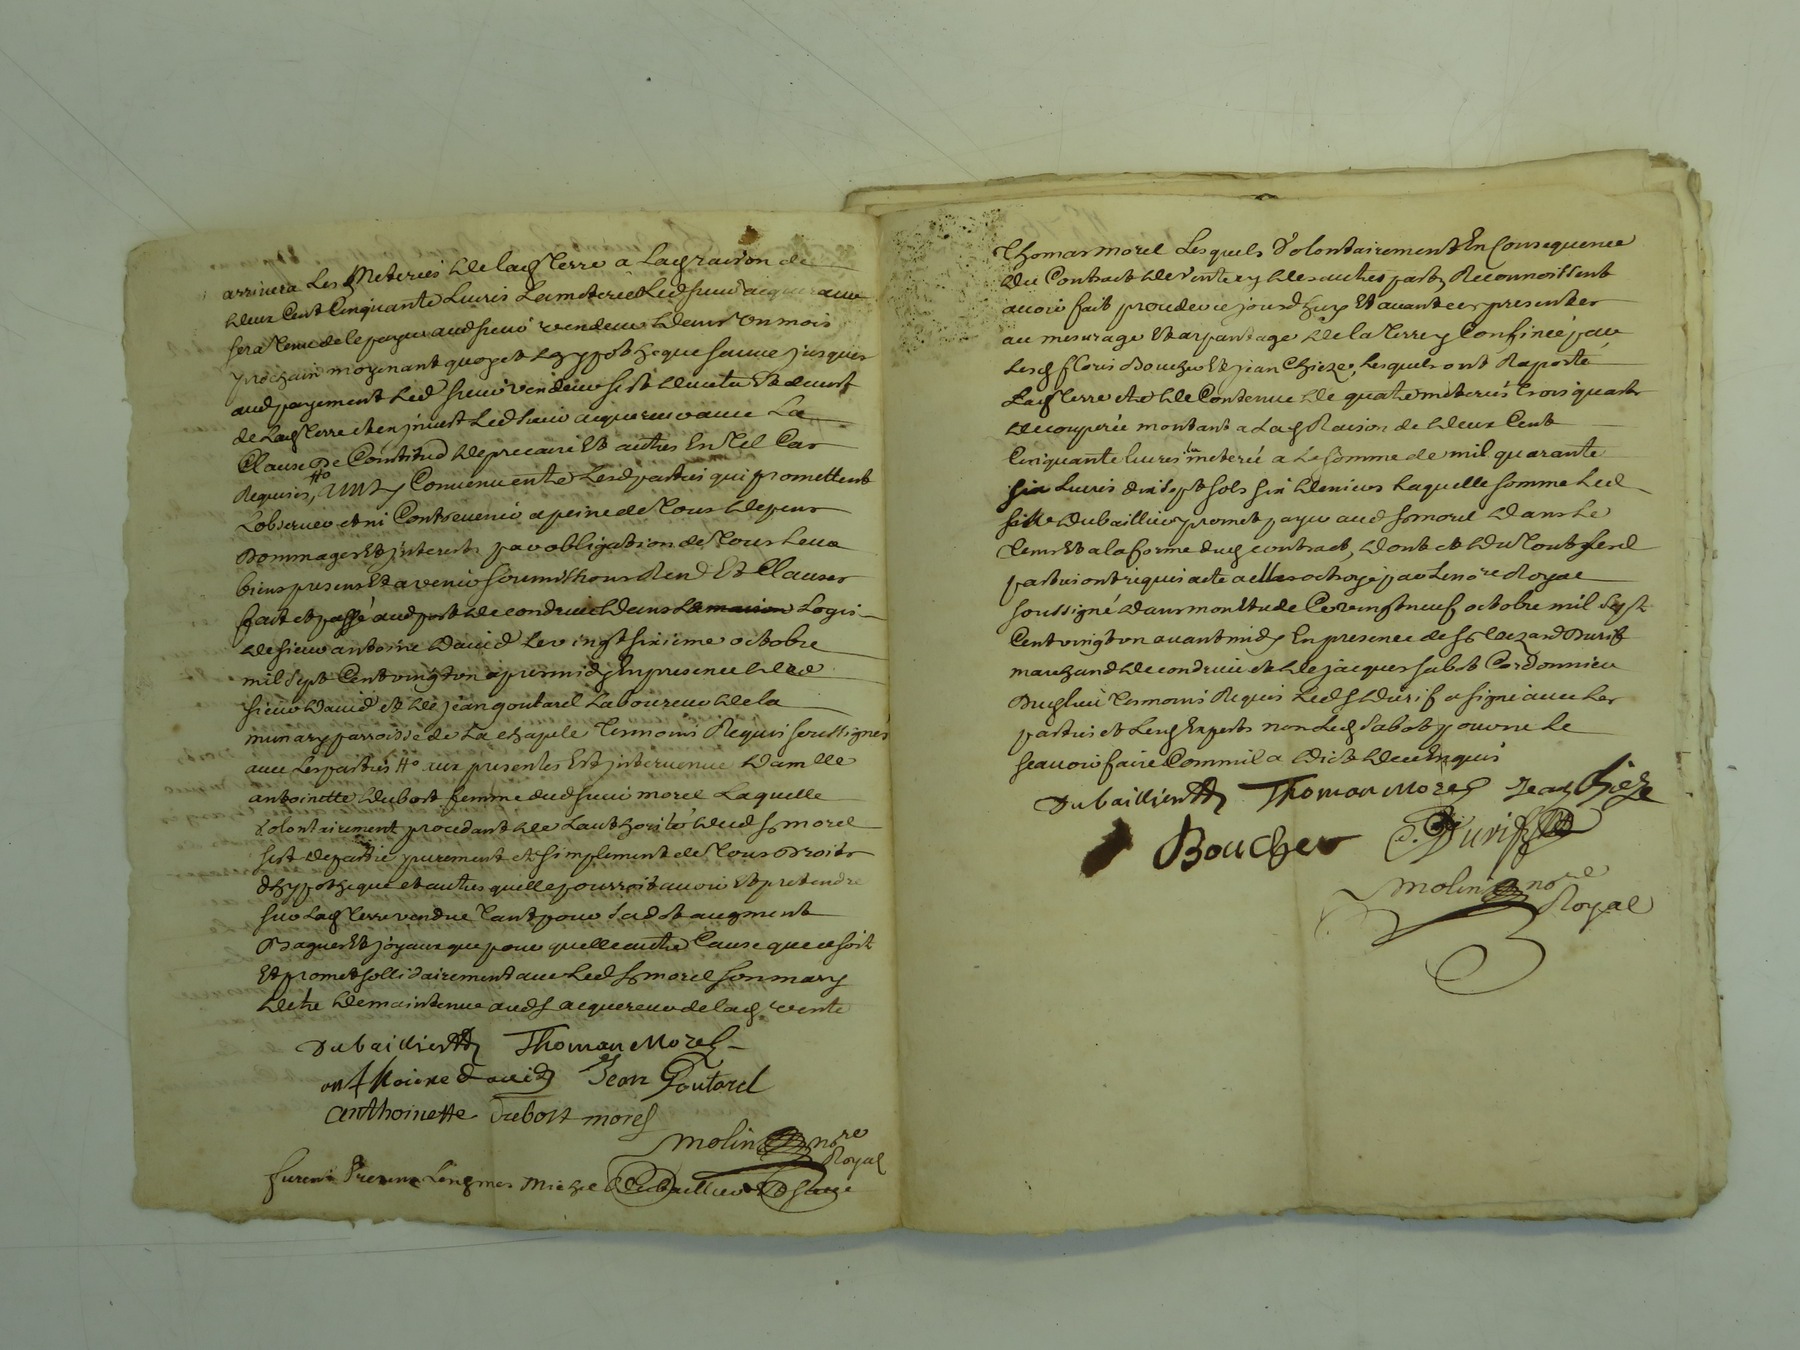 arrivera Les Meterées de lad. Terre a Lad. raison de
deux Cent Cinquante Livres La meterée Led. sieur acquereur
sera Tenu de le payer aud. sieur vendeur dans Un mois
prochain moyenant quoy et hyppotheque sauve jusques
aud. payement Led. sieur vendeur s'est devetu Et demis
de Lad. Terre et en jnvest Led. sieur acquereur avec La
Clause De Constitud de precaire Et autres En Tel Cas
Requises, Convenu entre Lesd. parties qui promettent
L'observer et ni Contrevenir a peine de Tous depens
Dommages Et jnterests par obligation de Tous Leurs
biens presens Et avenir soumissions Rend. Et Clauses
fait et passé aud. port de condrieu dans Le maison Logis
de sieur antoine david Le vingt sixieme octobre
mil sept Cent vingt un apres midy En presence dud.
sieur david et de jean goutarel Laboureur de la
munary parroisse de La chapele Temoins Requis soussignés
avec Les parties Ho aux presentes Est jntervenue damlle
antoinette dubost femme dud. sieur morel Laquelle
volontairement procedant de L'authorité dud. sr. morel
s'est departie purement et simplement de Tous Droits
d'hypotheque et autres quelle pourroit avoir Et pretendre
sur Lad. Terre vendue Tant pour sa dot augment
Bagues Et joyaux que pour quelle autre Cause que ce soit
Et promet sollidairement avec Led. sr. morel son mary
detre de maintenue aud. sr. acquereur de lad. vente
Dubaillier Thomas Morel
anthoine david Jean Goutarel
anthoinette dubost morel
Molin nore
Royal
Thomas morel Lesquels Volontairement En Consequence
du Contract de vente ex des autres parts Reconnoissent
avoir fait proceder ce jourd'huy Et avant ces presentes
au mesurage Et arpantage de la Terre y Confinée par
Lesd. floris Boucher Et jean Chieze, Lesquels ont Raporté
Lad. Terre etre de Contenue de quatre meterées Trois quarts
de couperée montant a Lad. Raison de deux Cent
Cinquante livres la meterée a La somme de mil quarante
six Livres dix sept sols six deniers Laquelle somme Led.
sieur dubaillier promet payer aud. sr. morel dans Le
Tems Et a la forme dud. contract, dont et du Tout Lesd.
parties ont requis acte a elles octroyé par Le nore Royal
soussigné dans mon Etude Ce vingt neuf octobre mil sept
Cent vingt un avant midy En presence de sr. Durif
marchand de condrieu et de jacques sabot Cordonnier
Dud. lieu Temoins Requis Led. sr. durif a signé avec Les
parties et Lesd. Experts non Led. sabot pour ne Le
scavoir faire Comm'il a dict de ce Enquis
Dubaillier Thomas Morel Jean Chieze
Boucher Durif
Molin nore
Royal